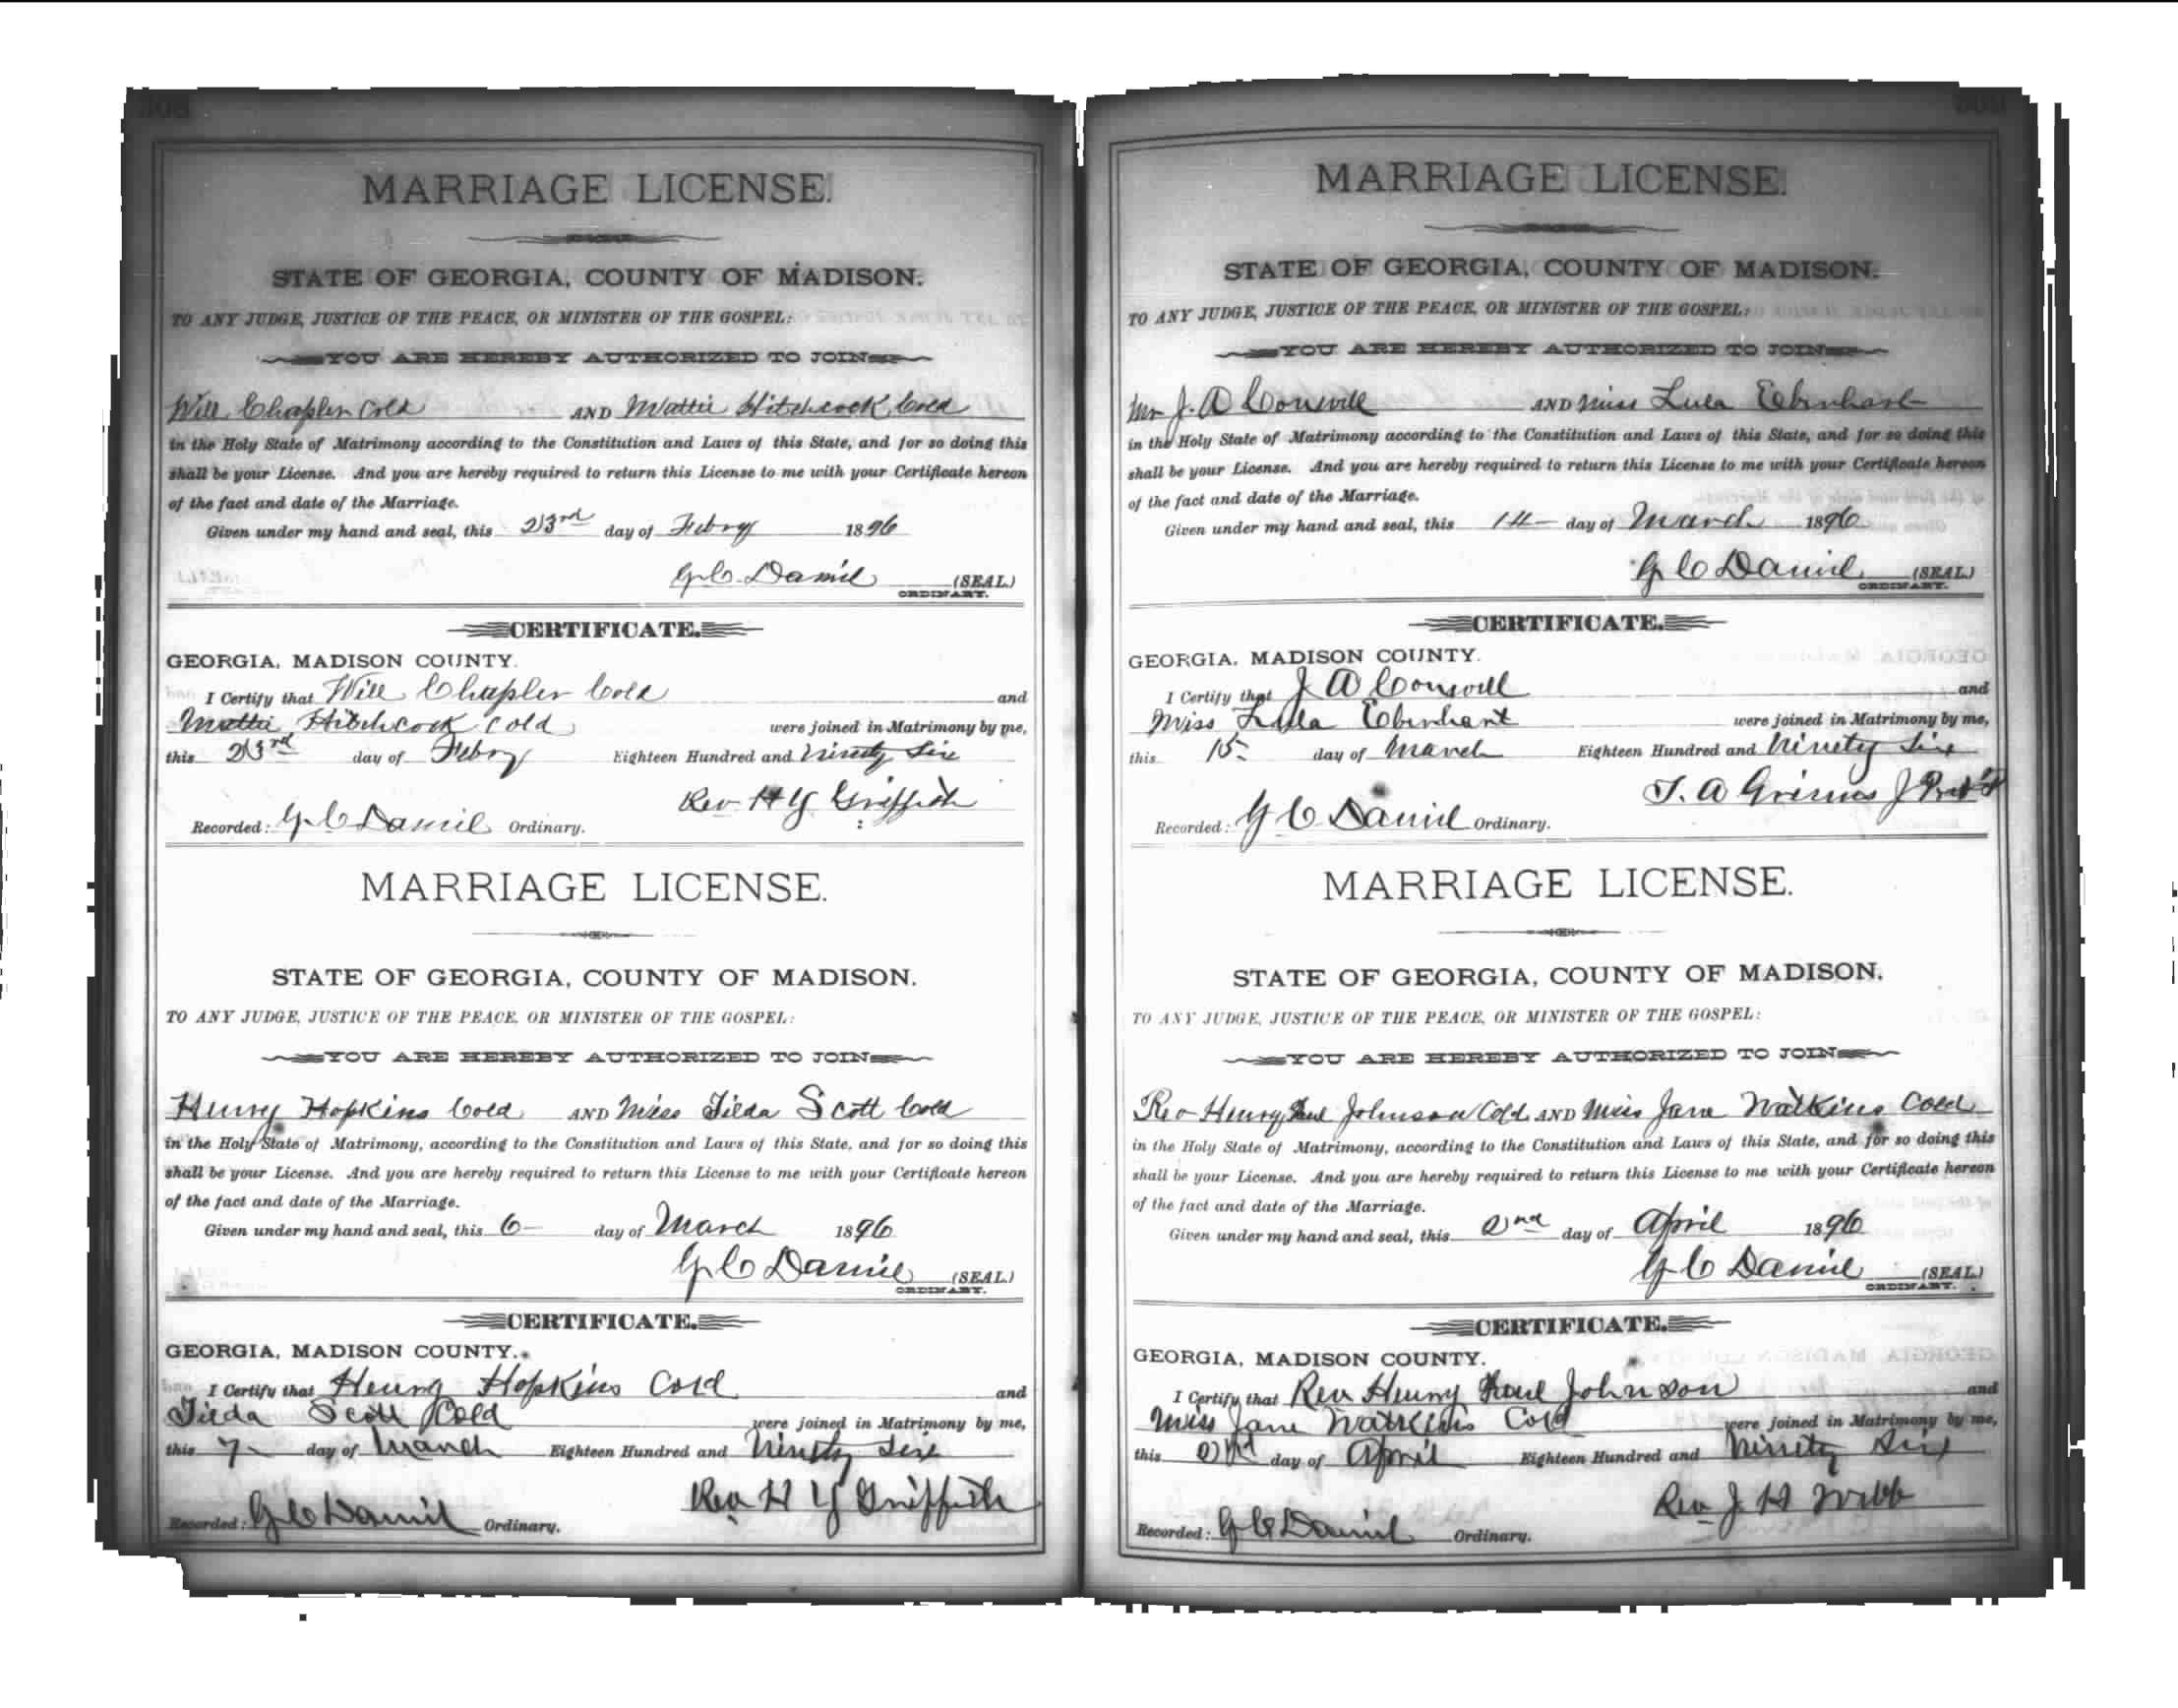 308
MARRIAGE LICENSE.
STATE OF GEORGIA, COUNTY OF MADISON.
TO ANY JUDGE, JUSTICE OF THE PEACE, OR MINISTER OF THE GOSPEL:
YOU ARE HEREBY AUTHORIZED TO JOIN
Will Chapler Cold AND Mattie Hitchcock Cold
in the Holy State of Matrimony according to the Constitution and Laws of this State, and for so doing this
shall be your License. And you are hereby required to return this License to me with your Certificate hereon
of the fact and date of the Marriage.
Given under my hand and seal, this 23rd day of Febry 1896
G. C. Daniel (SEAL)
ORDINARY.
CERTIFICATE.
GEORGIA, MADISON COUNTY.
I Certify that Will Chapler Cold and
Mattie Hitchcock Cold were joined in Matrimony by me,
this 23rd day of Febry Eighteen Hundred and Ninety Six
Rev H Y Griffith
Recorded: G. C Daniel Ordinary.
MARRIAGE LICENSE.
STATE OF GEORGIA, COUNTY OF MADISON.
TO ANY JUDGE, JUSTICE OF THE PEACE, OR MINISTER OF THE GOSPEL:
YOU ARE HEREBY AUTHORIZED TO JOIN
Henry Hopkins Cold AND Miss Tilda Scott Cold
in the Holy State of Matrimony, according to the Constitution and Laws of this State, and for so doing this
shall be your License. And you are hereby required to return this License to me with your Certificate hereon
of the fact and date of the Marriage.
Given under my hand and seal, this 6 day of March 1896
G. C Daniel (SEAL)
ORDINARY.
CERTIFICATE.
GEORGIA, MADISON COUNTY.
I Certify that Henry Hopkins Cold and
Tilda Scott Cold were joined in Matrimony by me,
this 7 day of March Eighteen Hundred and Ninety Six
Rev H Y Griffith
Recorded: G C Daniel Ordinary.
MARRIAGE LICENSE.
STATE OF GEORGIA, COUNTY OF MADISON.
TO ANY JUDGE, JUSTICE OF THE PEACE, OR MINISTER OF THE GOSPEL:
YOU ARE HEREBY AUTHORIZED TO JOIN
Mr J. A AND Miss Lula Eberhart
in the Holy State of Matrimony according to the Constitution and Laws of this State, and for so doing this
shall be your License. And you are hereby required to return this License to me with your Certificate hereon
of the fact and date of the Marriage.
Given under my hand and seal, this 14 day of March 1896
G C Daniel (SEAL)
ORDINARY.
CERTIFICATE.
GEORGIA, MADISON COUNTY.
I Certify that J A and
Miss Lula Eberhart were joined in Matrimony by me,
this 15 day of March Eighteen Hundred and Ninety Six
T. A Grimes J
Recorded: G C Daniel Ordinary.
MARRIAGE LICENSE.
STATE OF GEORGIA, COUNTY OF MADISON.
TO ANY JUDGE, JUSTICE OF THE PEACE, OR MINISTER OF THE GOSPEL:
YOU ARE HEREBY AUTHORIZED TO JOIN
Rev Henry Johnson Cold AND Miss Jane Watkins Cold
in the Holy State of Matrimony, according to the Constitution and Laws of this State, and for so doing this
shall be your License. And you are hereby required to return this License to me with your Certificate hereon
of the fact and date of the Marriage.
Given under my hand and seal, this 2nd day of April 1896
G C Daniel (SEAL)
ORDINARY.
CERTIFICATE.
GEORGIA, MADISON COUNTY.
I Certify that Rev Henry Johnson and
Miss Jane Watkins Cold were joined in Matrimony by me,
this 2nd day of April Eighteen Hundred and Ninety Six
Rev J H Webb
Recorded: G C Daniel Ordinary.